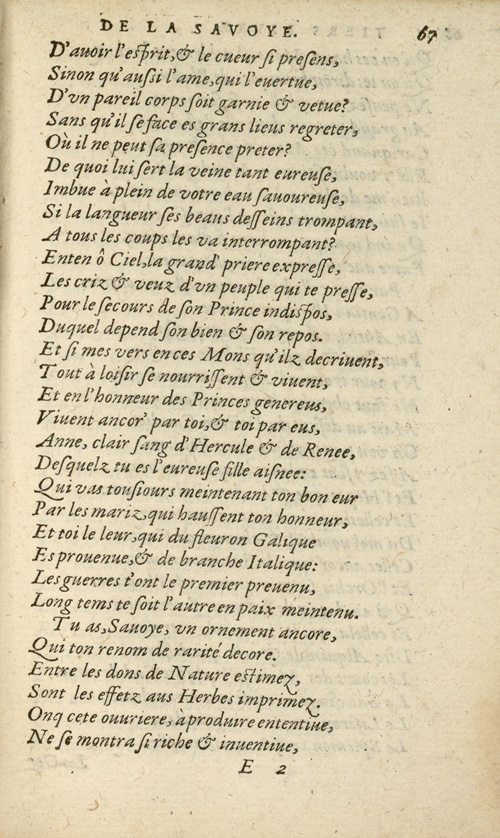 DE LA SAVOYE. 67
D'auoir l'esprit,& le cueur si presens,
Sinon qu'aussi l'ame,qui l'euertue,
D'vn pareil corps soit garnie & vetue?
Sans qu'il se face es grans lieus regreter,
Où il ne peut sa presence preter?
De quoi lui sert la veine tant eureuse,
Imbue à plein de votre eau sauoureuse,
Si la langueur ses beaus desseins trompant,
A tous les coups les va interrompant?
Enten ô Ciel,la grand' priere expresse,
Les criz & veuz d'vn peuple qui te presse,
Pour le secours de son Prince indispos,
Duquel depend son bien & son repos.
Et si mes vers en ces Mons qu'ilz decriuent,
Tout à loisir se nourrissent & viuent,
Et en l'honneur des Princes genereus,
Viuent ancor' par toi,& toi par eus,
Anne, clair sang d'Hercule & de Renee,
Desquelz tu es l'eureuse fille aisnee:
Qui vas tousiours meintenant ton bon eur
Par les mariz,qui haussent ton honneur,
Et toi le leur,qui du fleuron Galique
Es prouenue,& de branche Italique:
Les guerres t'ont le premier preuenu,
Long tems te soit l'autre en paix meintenu.
Tu as,Sauoye, vn ornement ancore,
Qui ton renom de rarité decore.
Entre les dons de Nature estimez,
Sont les effetz aus Herbes imprimez.
Onq cete ouuriere,à produire ententiue,
Ne se montra si riche & inuentiue,
E 2